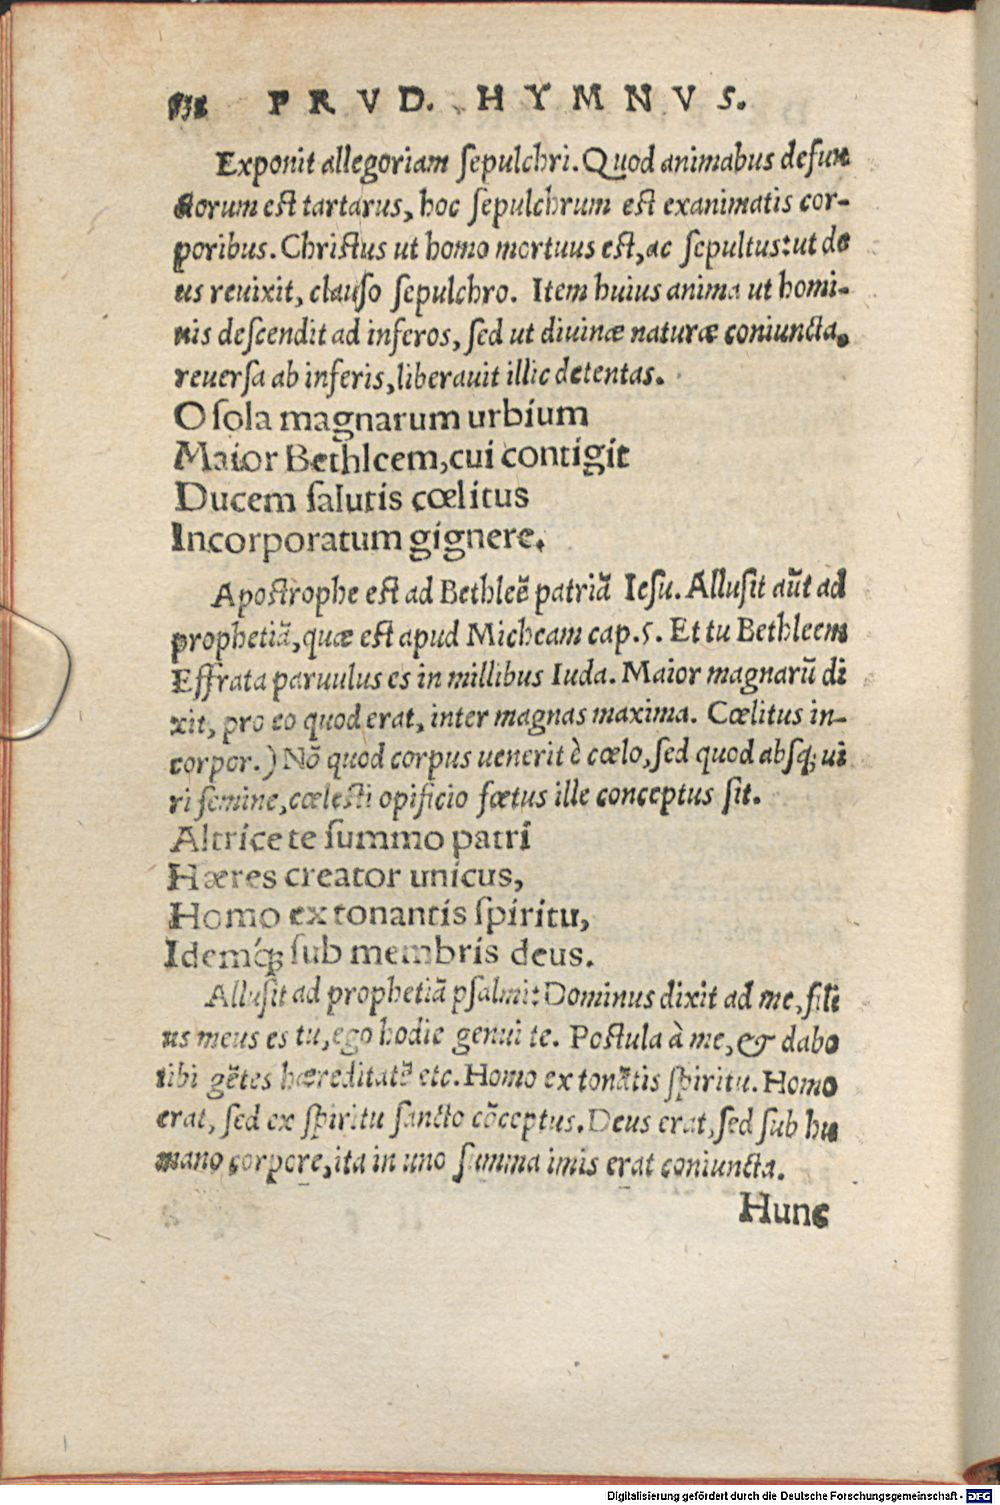 PRVD. HYMNVS.
Exponit allegoriam sepulchri. Quod animabus defun
ctorum est tartarus, hoc sepulchrum est exanimatis cor-
poribus. Christus ut homo mortuus est, ac sepultus: ut de
us reuixit, clauso sepulchro. Item huius anima ut homi-
nis descendit ad inferos, sed ut diuinæ naturæ coniuncta,
reuersa ab inferis, liberauit illic detentas.
O sola magnarum urbium
Maior Bethleem, cui contigit
Ducem salutis cœlitus
Incorporatum gignere.
Apostrophe est ad Bethleẽ patriã Iesu. Allusit aũt ad
prophetiã, quæ est apud Micheam cap. 5. Et tu Bethleem
Effrata paruulus es in millibus Iuda. Maior magnarũ di
xit, pro eo quod erat, inter magnas maxima. Cœlitus in-
corpor.) Nõ quod corpus uenerit è cœlo, sed quod absq; ui
ri semine, cœlesti opificio fœtus ille conceptus sit.
Altrice te summo patri
Hæres creator unicus,
Homo ex tonantis spiritu,
Idemq́; sub membris deus.
Allusit ad prophetiã psalmi: Dominus dixit ad me, fili
us meus es tu, ego hodie genui te. Postula à me, & dabo
tibi gẽtes hæreditatẽ etc. Homo ex tonãtis spiritu. Homo
erat, sed ex spiritu sancto cõceptus. Deus erat, sed sub hu
mano corpore, ita in uno summa imis erat coniuncta.
Hunc
Digitalisierung gefördert durch die Deutsche Forschungsgemeinschaft - DFG